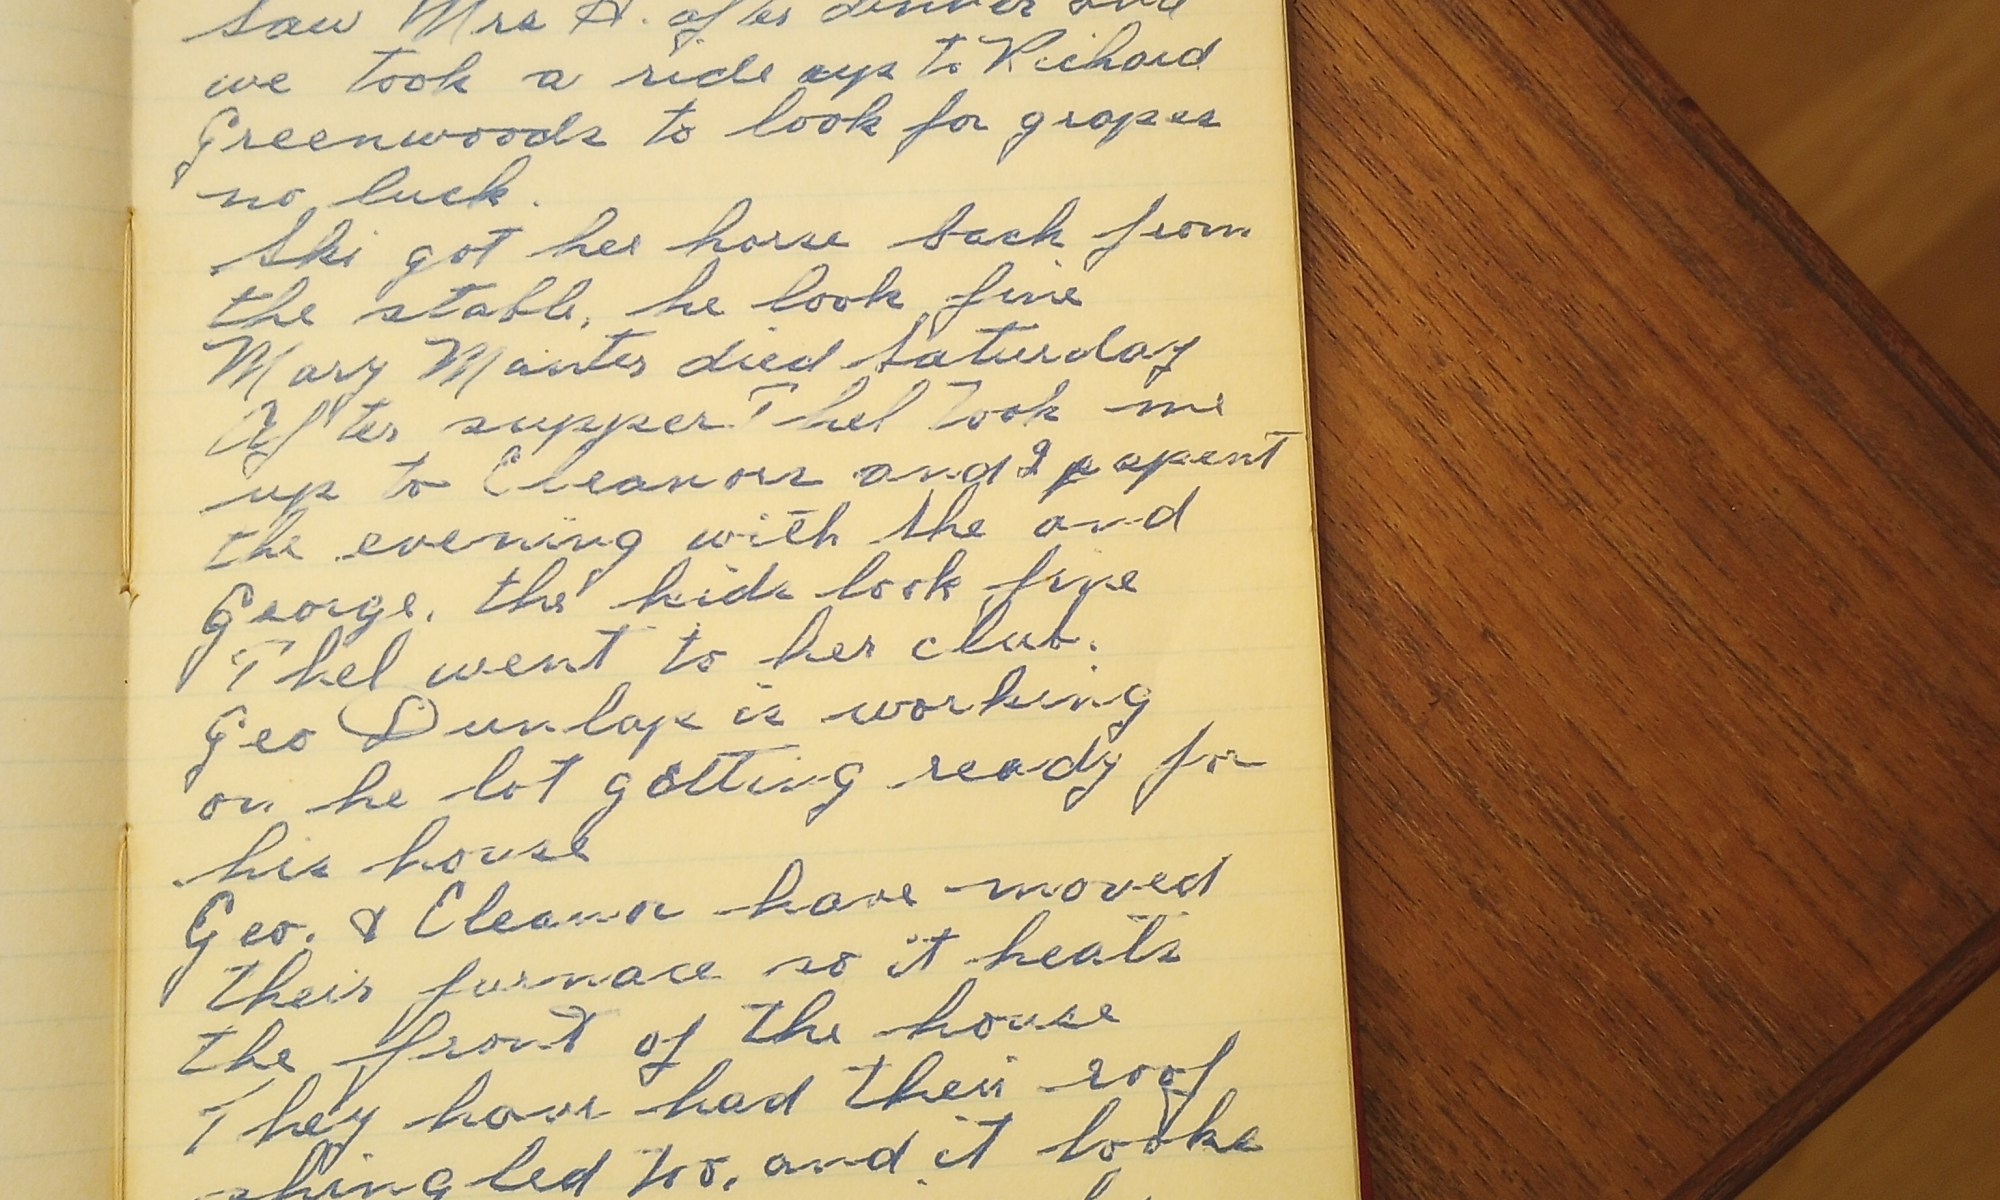 Saw Mrs H. after dinner and
we took a ride up to Richard
Greenwoods to look for grapes
no luck.
Ski got her horse back from
the stable, he look fine
Mary Manter died Saturday
After supper Thel took me
up to Eleanors and I spent
the evening with she and
George, the kids look fine
Thel went to her club.
Geo Dunlap is working
on he lot getting ready for
his house
Geo. & Eleanor have moved
their furnace so it heats
the front of the house
They have had their roof
shingled too, and it looks